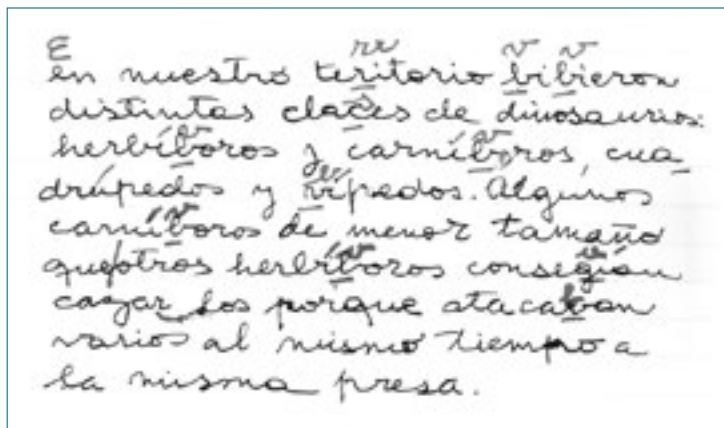 En nuestro teritorio bibieron
distintas clases de dinosaurios:
herbíboros y carníboros, cua
drúpedos y vípedos. Algunos
carníboros de menor tamaño
que otros herbíboros consegían
cazar los porque atacaban
varios al mismo tiempo a
la misma presa.